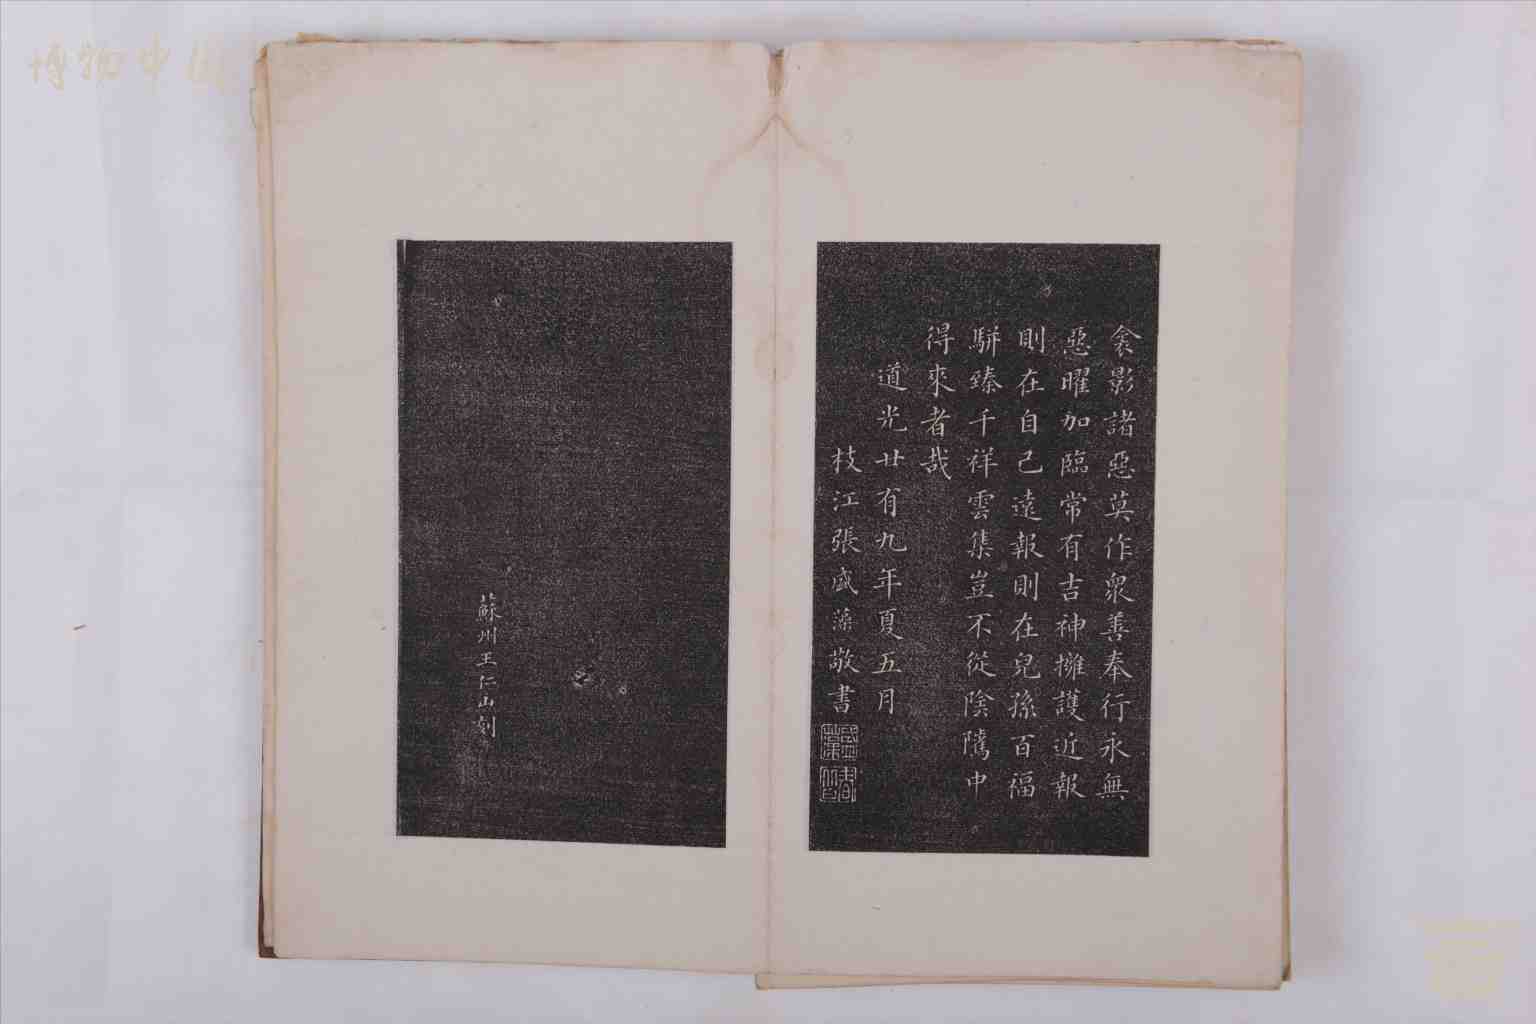 衾影諸惡莫作衆善奉行永無
惡曜加臨常有吉神擁護近報
則在自己遠報則在兒孫百福
駢臻千祥雲集豈不從陰隲中
得來者哉
道光廿有九年夏五月
枝江張盛藻敬書
蘇州王仁山刻
博物中国